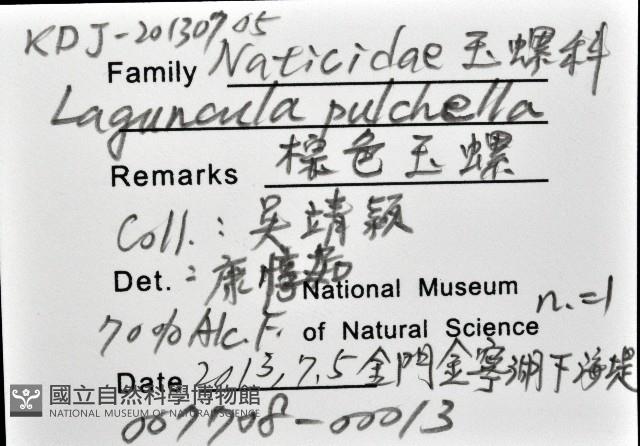 KDJ-20130705
Family Naticidae 玉螺科
Laguncula pulchella
Remarks 棕色玉螺
Coll.: 吳靖穎
Det.: 康惇茹
National Museum
n.=1
70% Alc. F. of Natural Science
Date 2013,7.5 金門金寧湖下海堤
國立自然科學博物館
NATIONAL MUSEUM OF NATURAL SCIENCE
007708-00013